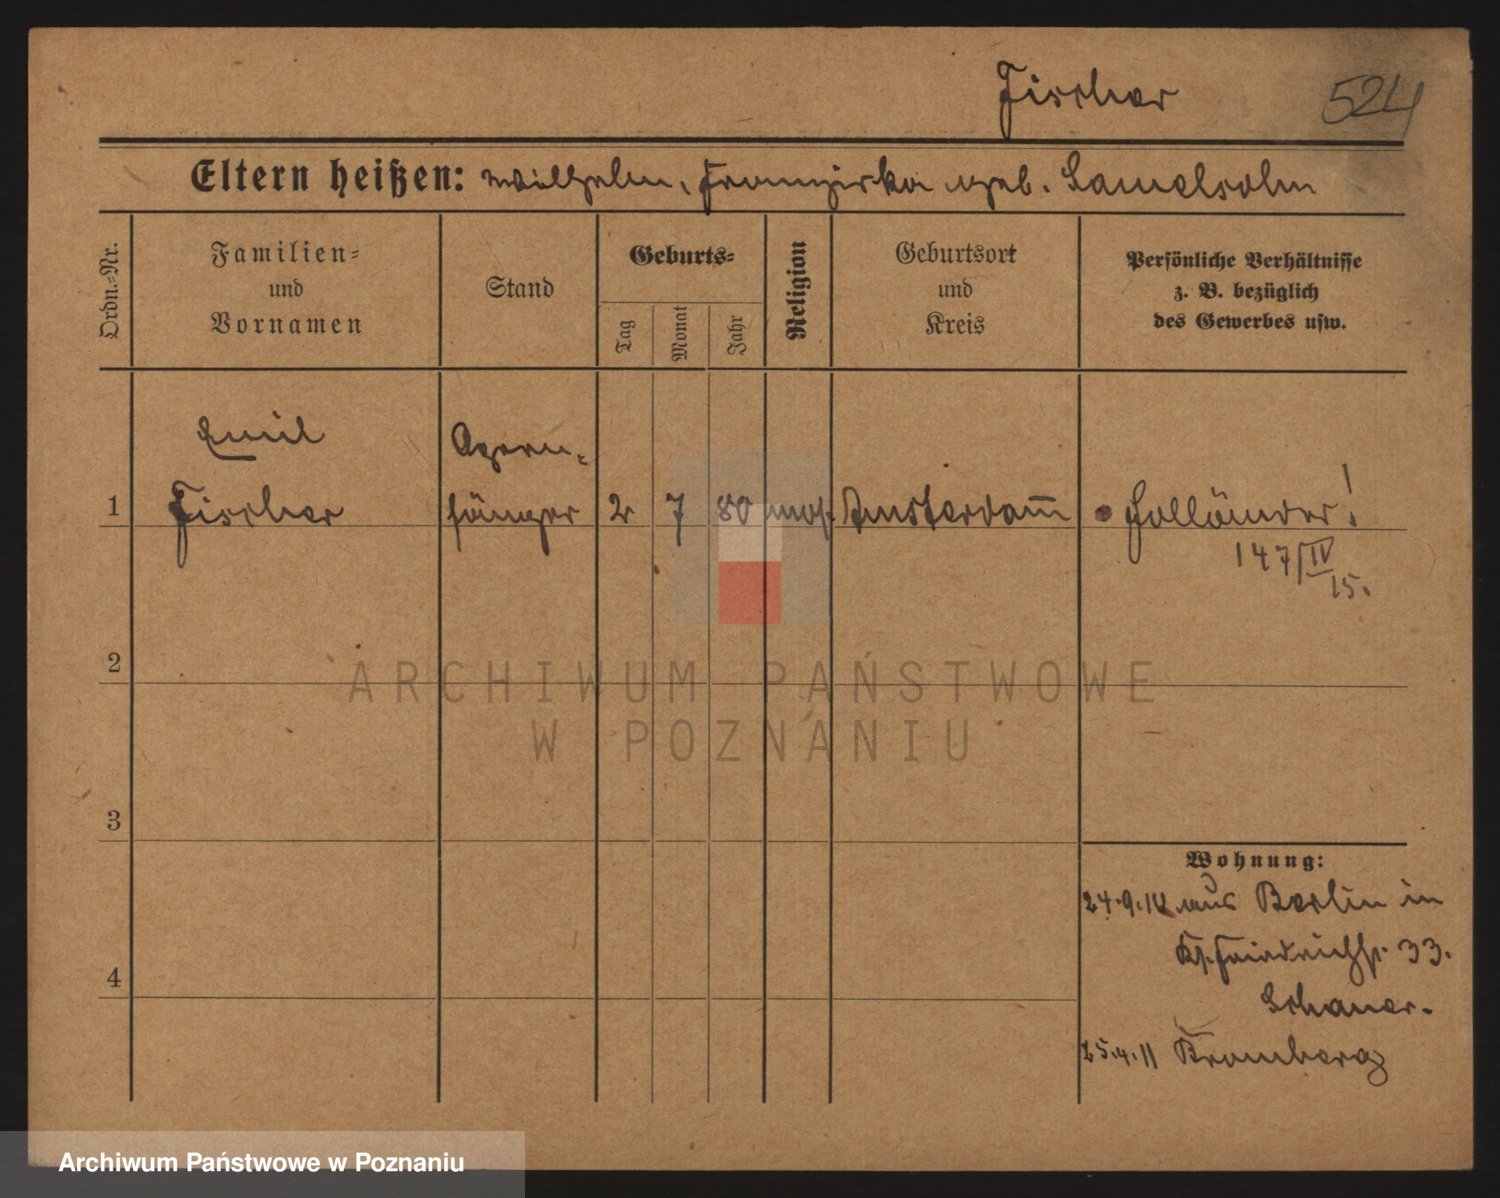 Fischer
524
Eltern heißen: Wilhelm, Franziska geb. Samelsohn
Ordn.-Nr.
Familien-
und
Vornamen
Stand
Geburts-
Tag
Monat
Jahr
Religion
Geburtsort
und
Kreis
Persönliche Verhältnisse
z. B. bezüglich
des Gewerbes usw.
Emil
Fischer
Opern-
sänger
1
2 7 80 mos. Amsterdam
Holländer!
147/IV
15.
2
3
4
Wohnung:
24.9.10 aus Berlin in
33.
Schauer.
25.4.11 Bromberg
ARCHIWUM PAŃSTWOWE
W POZNANIU
Archiwum Państwowe w Poznaniu